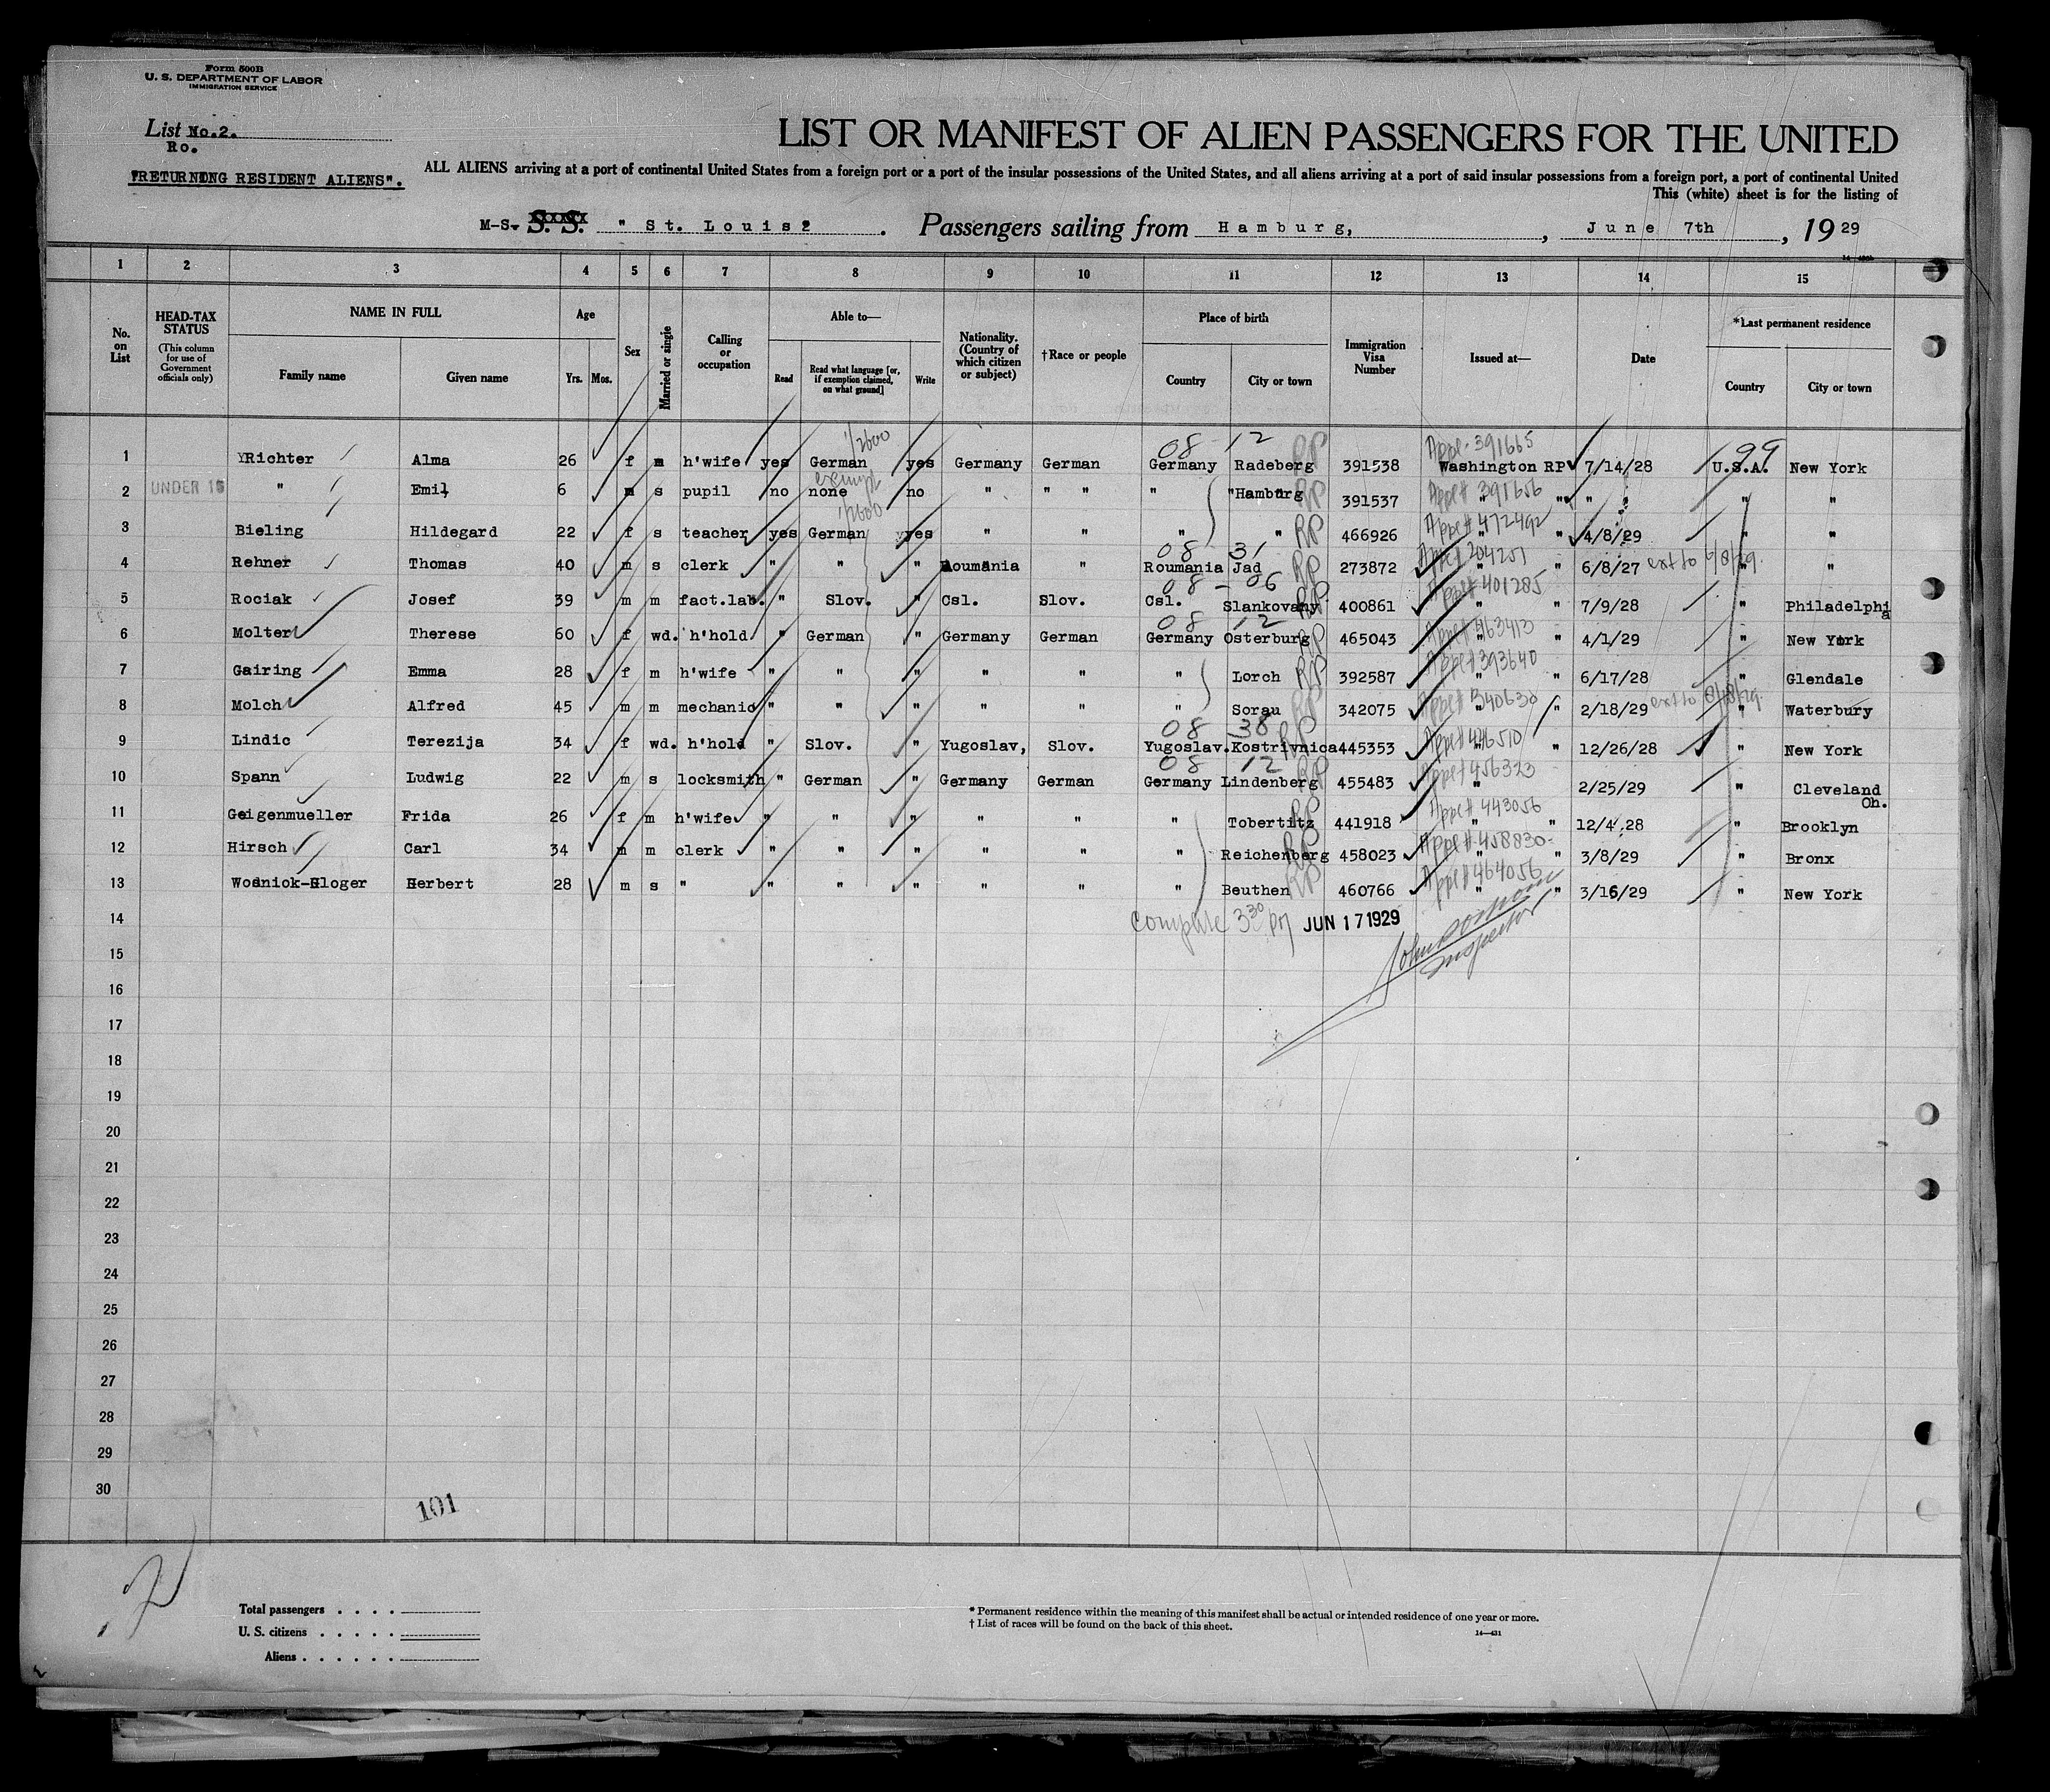 Form 500B
U. S. DEPARTMENT OF LABOR
IMMIGRATION SERVICE
List No.2.
Ro.
"RETURNING RESIDENT ALIENS".
LIST OR MANIFEST OF ALIEN PASSENGERS FOR THE UNITED
ALL ALIENS arriving at a port of continental United States from a foreign port or a port of the insular possessions of the United States, and all aliens arriving at a port of said insular possessions from a foreign port, a port of continental United
This (white) sheet is for the listing of
M-S- S. S. " St. Louis . Passengers sailing from Hamburg, , June 7th , 19 29
1 2 3 4 5 6 7 8 9 10 11 12 13 14 15
No. on List
HEAD-TAX STATUS
(This column for use of Government officials only)
NAME IN FULL
Family name Given name
Age
Yrs. Mos.
Sex
Married or single
Calling or occupation
Able to—
Read
Read what language [or, if exemption claimed, on what ground]
Write
Nationality. (Country of which citizen or subject)
†Race or people
Place of birth
Country City or town
Immigration Visa Number
Issued at—
Date
*Last permanent residence
Country City or town
1/2600 08 - 12 RP Appl- 391665 99
1 Richter Alma 26 f m h'wife yes German yes Germany German Germany Radeberg 391538 Washington RP 7/14/28 U.S.A. New York
exempt Appl# 391656
2 UNDER 16 " Emil 6 m s pupil no none no " " " " "Hamburg RP 391537 " " " " " "
1/2600 Appl# 472492
3 Bieling Hildegard 22 f s teacher yes German yes " " " " RP 466926 " " 4/8/29 " "
08 31 Appl# 204251
4 Rehner Thomas 40 m s clerk " " " Roumania " Roumania Jad RP 273872 " " 6/8/27 ext to 6/8/29. " "
08 - 06 Appl# 401285
5 Rociak Josef 39 m m fact.lab. " Slov. " Csl. Slov. Csl. Slankovany RP 400861 " " 7/9/28 " Philadelphia
08 12 Appl# 463413
6 Molter Therese 60 f wd. h'hold " German " Germany German Germany Osterburg RP 465043 " " 4/1/29 " New York
Appl# 393640
7 Gairing Emma 28 f m h'wife " " " " " " Lorch RP 392587 " " 6/17/28 " Glendale
Appl# 340630
8 Molch Alfred 45 m m mechanic " " " " " " Sorau RP 342075 " " 2/18/29 ext to " Waterbury
08 38 Appl# 446510
9 Lindic Terezija 34 f wd. h'hold " Slov. " Yugoslav, Slov. Yugoslav. Kostrivnica RP 445353 " " 12/26/28 " New York
08 12 Appl# 456323
10 Spann Ludwig 22 m s locksmith " German " Germany German Germany Lindenberg RP 455483 " 2/25/29 " Cleveland Oh.
Appl# 443056
11 Geigenmueller Frida 26 f m h'wife " " " " " " Tobertitz RP 441918 " " 12/4/28 " Brooklyn
Appl# 458830-
12 Hirsch Carl 34 m m clerk " " " " " " Reichenberg RP 458023 " " 3/8/29 " Bronx
Appl# 464056
13 Wosniok-Kloger Herbert 28 m s " " " " " " " Beuthen RP 460766 " " 3/16/29 " New York
14 complete 3 30 pm JUN 17 1929
John
Inspector
15
16
17
18
19
20
21
22
23
24
25
26
27
28
29
30
101
2
Total passengers . . . .
U. S. citizens . . . . .
Aliens . . . . . .
* Permanent residence within the meaning of this manifest shall be actual or intended residence of one year or more.
† List of races will be found on the back of this sheet.
14—431